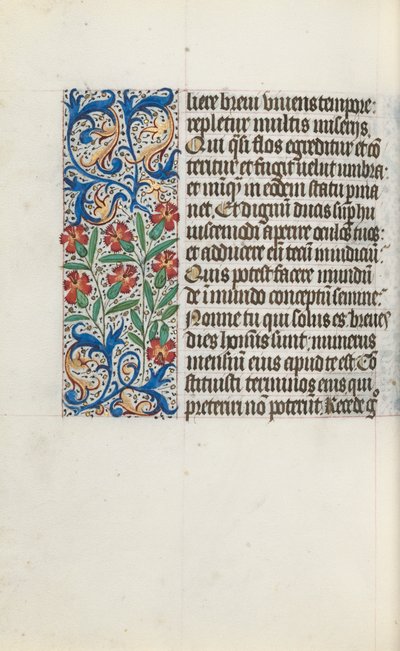 liere breui viuens tempore:
repletur multis miserijs
Qui q̃si flos egreditur et cõ
teritur et fugit uelut umbra:
et nũq̃ in eodem statu pma
net. Et dignũ ducis sup̱ hu
iuscemodi aperire oculos tuos:
et adducere eũ tecũ in iudiciũ
Quis potest facere mundũ
de ĩmundo conceptũ semine
Nonne tu qui solus es breues
dies hominis sunt: numerus
mensiũ eius apud te est. Cõ
stituisti terminos eius qui
preteriri nõ poterũt Recede g̊